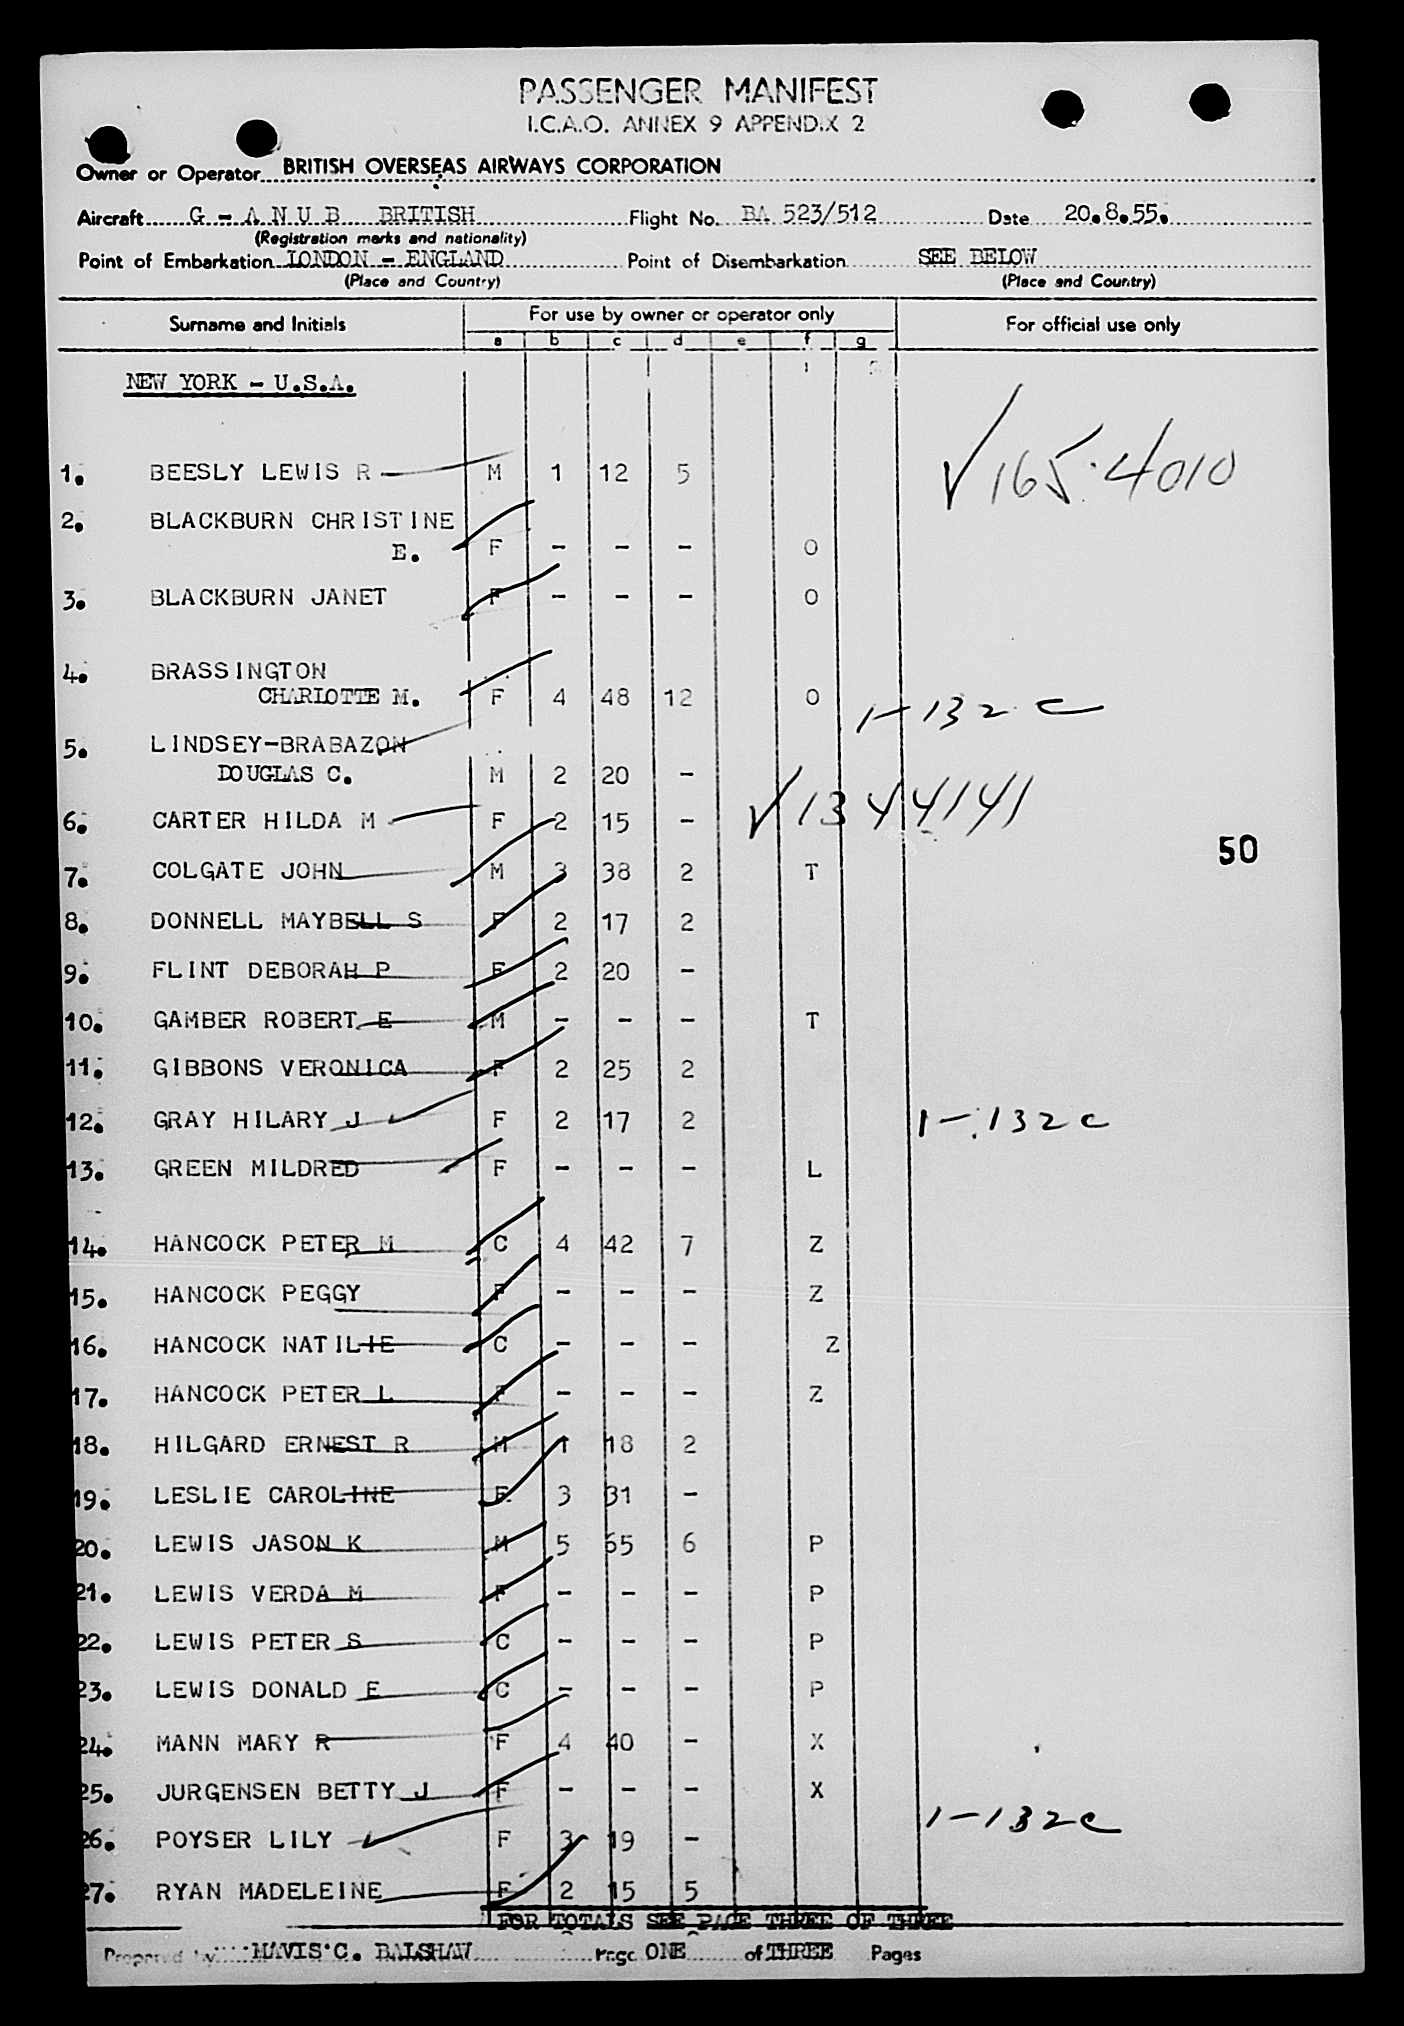 PASSENGER MANIFEST
I.C.A.O. ANNEX 9 APPENDIX 2
Owner or Operator BRITISH OVERSEAS AIRWAYS CORPORATION
Aircraft G - A N U B BRITISH Flight No. BA 523/512 Date 20.8.55.
(Registration marks and nationality)
Point of Embarkation LONDON - ENGLAND Point of Disembarkation SEE BELOW
(Place and Country) (Place and Country)
Surname and Initials For use by owner or operator only For official use only
a b c d e f g
NEW YORK - U.S.A.
✓165.4010
1. BEESLY LEWIS R M 1 12 5
2. BLACKBURN CHRISTINE
E. F - - - O
3. BLACKBURN JANET F - - - O
4. BRASSINGTON
CHARLOTTE M. F 4 48 12 O 1-132 c
5. LINDSEY-BRABAZON
DOUGLAS C. M 2 20 -
✓1344141
6. CARTER HILDA M F 2 15 -
50
7. COLGATE JOHN M 3 38 2 T
8. DONNELL MAYBELL S F 2 17 2
9. FLINT DEBORAH P F 2 20 -
10. GAMBER ROBERT E M - - - T
11. GIBBONS VERONICA F 2 25 2
12. GRAY HILARY J F 2 17 2 1-132c
13. GREEN MILDRED F - - - L
14. HANCOCK PETER M C 4 42 7 Z
15. HANCOCK PEGGY F - - - Z
16. HANCOCK NATILIE C - - - Z
17. HANCOCK PETER L F - - - Z
18. HILGARD ERNEST R M 1 18 2
19. LESLIE CAROLINE F 3 31 -
20. LEWIS JASON K M 5 65 6 P
21. LEWIS VERDA M F - - - P
22. LEWIS PETER S C - - - P
23. LEWIS DONALD E C - - - P
24. MANN MARY R F 4 40 - X
25. JURGENSEN BETTY J F - - - X
26. POYSER LILY F 3 19 - 1-132c
27. RYAN MADELEINE F 2 15 5
FOR TOTALS SEE PAGE THREE OF THREE
Prepared by MAVIS C. BALSHAW Page ONE of THREE Pages